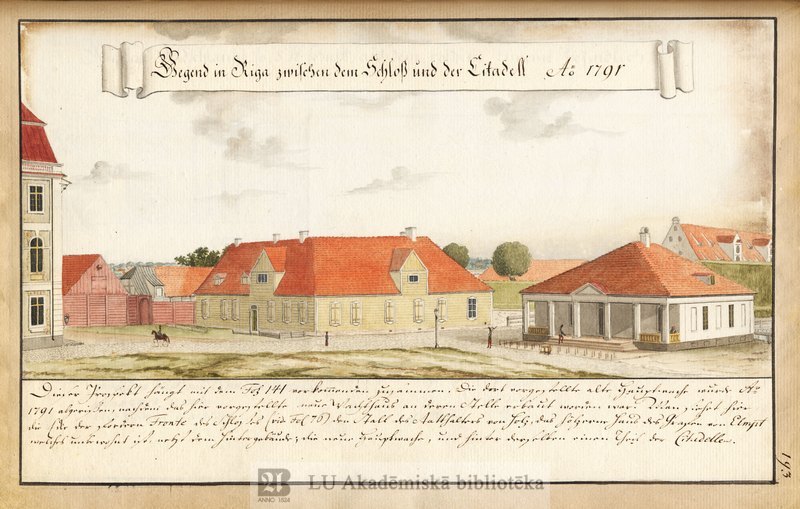 Gegend in Riga zwischen dem Schloß und der Citadell Aº 1791
Dieser Prospekt hängt mit dem Fol 141 vorkommenden zusammen. Die dort vorgestellte alte Hauptwache wurde Aº
1791 abgerissen, nachdem das hier vorgestellte neue Wachthaus an deren Stelle erbaut worden war. Man siehet hier
die der Fronte des Schlosses (vid Fol 76) den Stall des Statthalters von Holz, das hölzerne Haus des Grafen von
welches unbewohnt ist, nebst dem Hintergebäude; die neue Hauptwache, und hinter derselben einen Theil der Citadelle.
193
ANNO 1524
LU Akadēmiskā bibliotēka